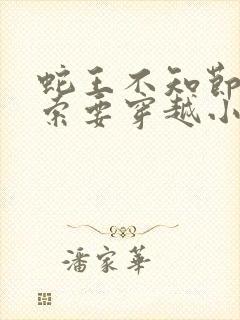 蛇王不知节
索要穿越小
潘家华